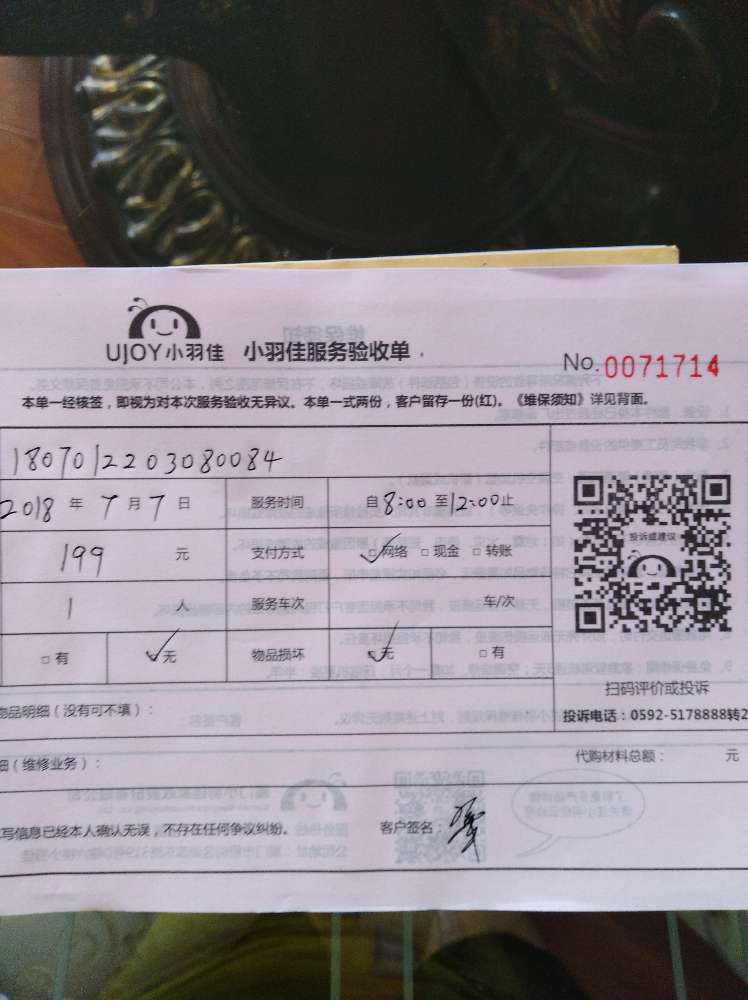 UJOY小羽佳 小羽佳服务验收单
No.0071714
本单一经核签，即视为对本次服务验收无异议。本单一式两份，客户留存一份(红)。《维保须知》详见背面。
1807012203080084
2018 年 7 月 7 日 服务时间 自8:00至12:00止
199 元 支付方式 □网络 □现金 □转账
投诉或建议
1 人 服务车次 车/次
□有 无 物品损坏 □无 □有
扫码评价或投诉
物品明细（没有可不填）：
投诉电话：0592-5178888转2
细（维修业务）： 代购材料总额： 元
写信息已经本人确认无误，不存在任何争议纠纷。 客户签名：